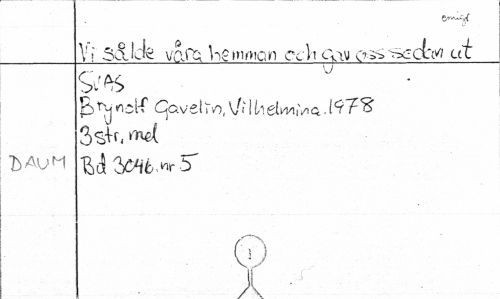 emigr
Vi sålde våra hemman och gav oss sedan ut
SVAS
Brynolf Gavelin, Vilhelmina. 1978
3 str, mel
DAUM Bd 3046. nr 5